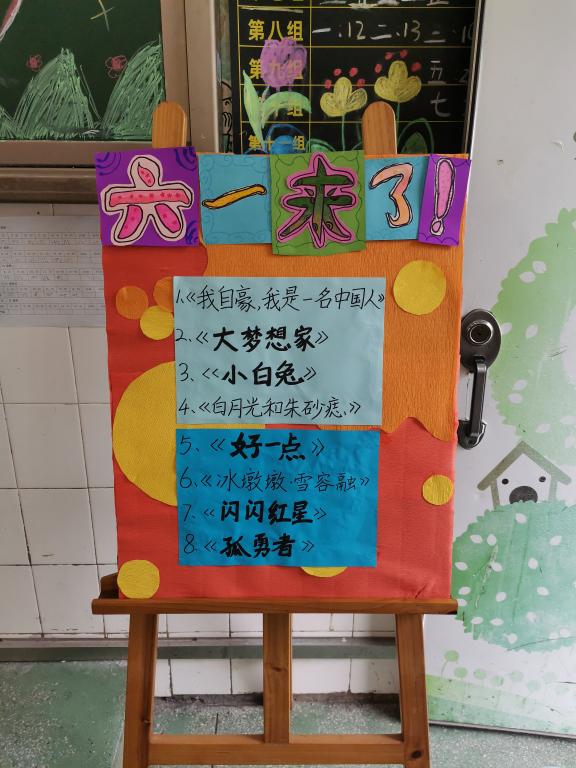 第八组 一.12 二.13 三
第九组 五
第十组 七
第十一组
六一来了!
1.《我自豪,我是一名中国人》
2.《大梦想家》
3.《小白兔》
4.《白月光和朱砂痣》
5.《好一点》
6.《冰墩墩·雪容融》
7.《闪闪红星》
8.《孤勇者》